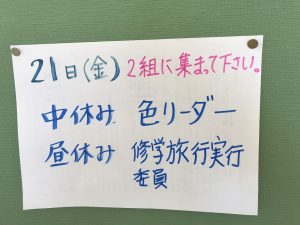 21日(金) 2組に集まって下さい。
中休み 色リーダー
昼休み 修学旅行実行
委員